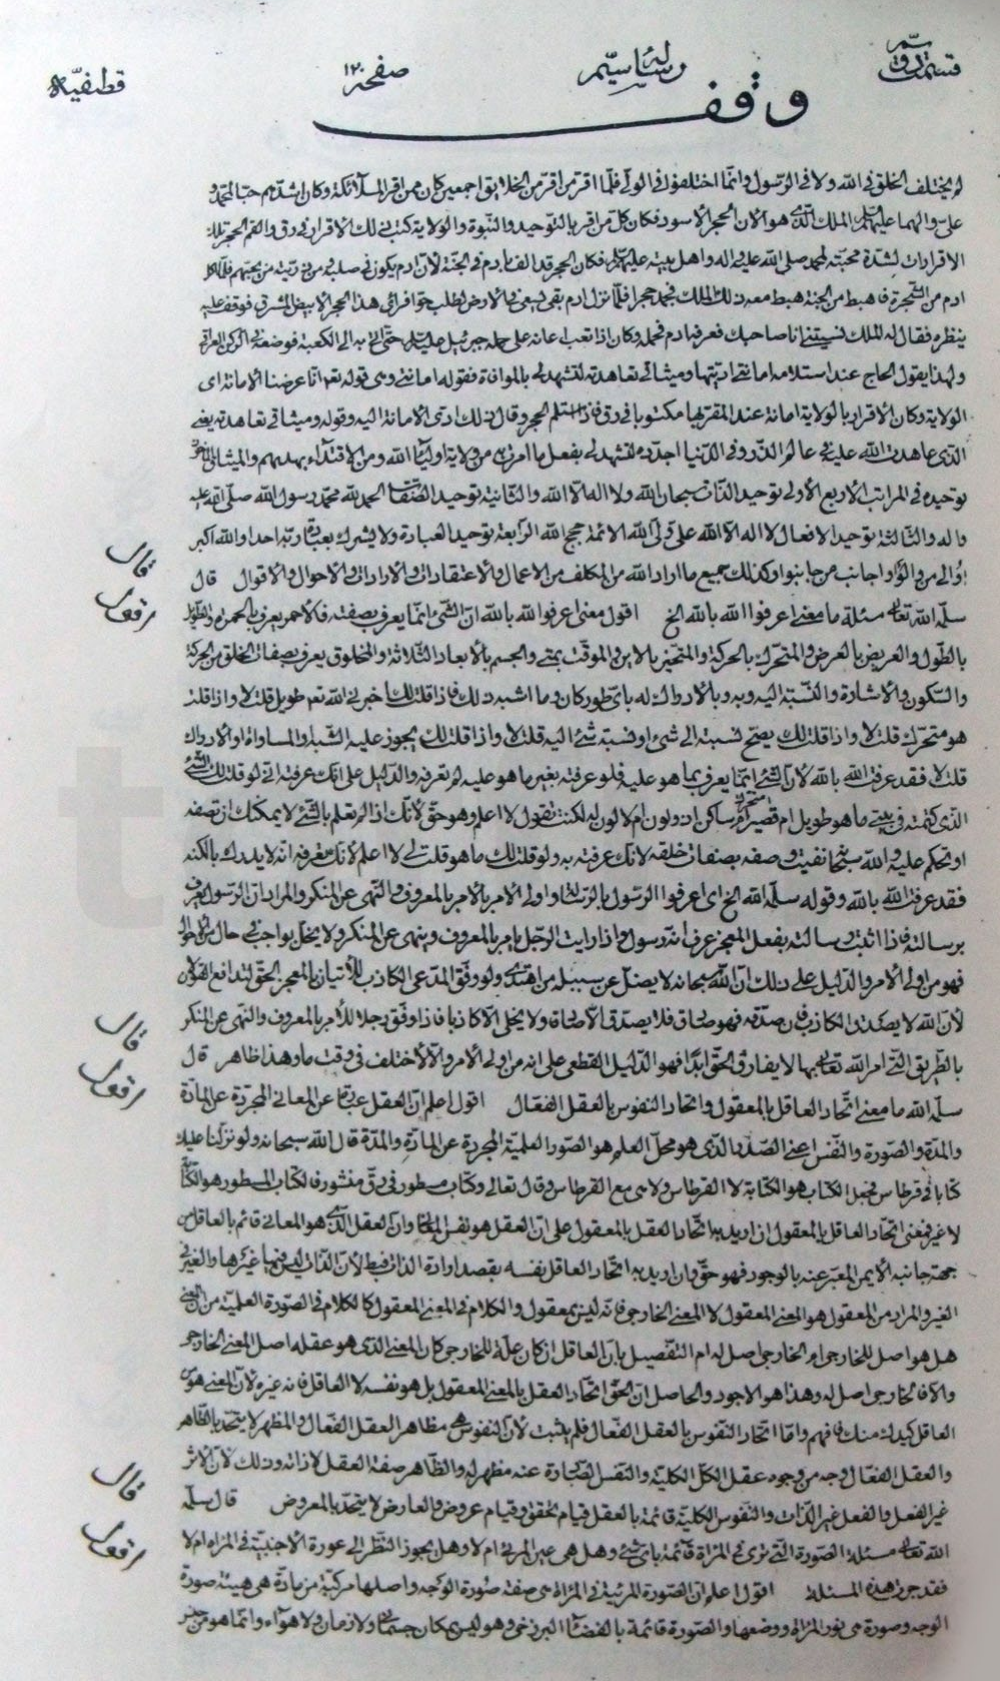 قسمت دوم رسالة تاسعة صفحة ١٢٠ قطيفية
وقف
لم يختلف الخلق في الله ولا في الرسول وانما اختلفوا في الولي فلما اقر من اقر من الخلايق اجمعين كان ممن اقر الملائكة وكان اشدهم حبا لمحمد و
على والهما عليهم السلام الملك الذي هو الان الحجر الاسود فكان كل من اقر بالتوحيد والنبوة والولاية كتب ذلك الاقرار في رق والقم الحجر تلك
الاقرارات لشدة محبته لمحمد صلى الله عليه واله واهل بيته عليهم السلام فكان الحجر قد الف بادم في الجنة لان ادم يكون في صلبه من ذريته من يحبهم فلما اكل
ادم من الشجرة فاهبط من الجنة هبط معه ذلك الملك فجمد حجرا فلما نزل ادم بقى يسعى في الارض يطلب حوا فرائ هذا الحجر الابيض المشرق فوقف عليه
ينظره فقال له الملك نسيتني انا صاحبك فعرفه ادم فحمله وكان اذا تعب اعانه على حمله جبرئيل عليه السلام حتى اتى به الى الكعبة فوضعه في الركن العراقي
ولهذا يقول الحاج عند استلامه امانتي اديتها وميثاقي تعاهدته لتشهد لي بالموافاة فقوله امانتي وهى قوله تعالى انا عرضنا الامانة اى
الولاية وكان الاقرار بالولاية امانة عند المقر بها مكتوبا في رق فاذا استلم الحجر وقال ذلك ادى الامانة اليه وقوله وميثاقي تعاهدته يعنى
الذي عاهدت الله عليه في عالم الذر وفي الدنيا اجدده لتشهد لي بفعل ما امرت به من ولاية اولياء الله ومن الاقتداء بهديهم والميثاق
توحيده في المراتب الاربع الاولى توحيد الذات سبحان الله ولا اله الا الله والثانية توحيد الصفات الحمد لله محمد رسول الله صلى الله عليه
واله والثالثة توحيد الافعال لا اله الا الله على ولى الله الائمة حجج الله الرابعة توحيد العبادة ولا يشرك بعبادة ربه احدا والله اكبر
اوالى من والوا واجانب من جانبوا وكذلك جميع ما اراد الله من المكلف من الاعمال والاعتقادات والارادات والاحوال والاقوال قال
سلمه الله تعالى مسئلة ما معنى اعرفوا الله بالله الخ اقول معنى اعرفوا الله بالله ان الشئ انما يعرف بصفته فالاحمر يعرف بالحمرة والطويل
بالطول والعريض بالعرض والمتحرك بالحركة والمتحيز بالاين والموقت بمتى والجسم بالابعاد الثلاثة والمخلوق يعرف بصفات الخلق من الحركة
والسكون والاشارة والنسبة اليه وبه وبالادراك له باى طور كان وما اشبه ذلك فاذا قلت لك اخبرني الله تعالى طويل قلت لا واذا قلت
هو متحرك قلت لا واذا قلت لك يصح نسبته الى شئ او نسبة شئ اليه قلت لا واذا قلت لك يجوز عليه الشبه او المساواة او الادراك
قلت لا فقد عرفت الله بالله لان الشئ انما يعرف بما هو عليه فلو عرفته بغير ما هو عليه لم تعرفه والدليل على انك عرفته انى لو قلت لك الشئ
الذي كتمته في بيتى ما هو طويل ام قصير متحرك ام ساكن اذو لون ام لا لون له لكنت تقول لا اعلم وهو حق لانك اذا لم تعلم بالشئ لا يمكنك ان تصفه
او تحكم عليه والله سبحانه نفيت وصفه بصفات خلقه لانك عرفته به ولو قلت لك ما هو قلت لى لا اعلم لانك تعرفه انه لا يدرك بالكنه
فقد عرفت الله بالله وقوله سلمه الله الخ اى اعرفوا الرسول بالرسالة واولى الامر بالامر بالمعروف والنهى عن المنكر والمراد ان الرسول يعرف
برسالته فاذا اثبت رسالته بفعل المعجز عرف انه رسول واذا رايت الرجل يامر بالمعروف وينهى عن المنكر ولا يخل بواجب في حال من الاحوال
فهو من اولى الامر والدليل على ذلك ان الله سبحانه لا يضل عن سبيله من اهتدى ولو وفق المدعى الكاذب للاتيان بالمعجز الحق لتدافع القولان
لان الله لا يصدق الكاذب فان صدقه فهو صادق فلا يصدق الا صادقا ولا يخلى الا كاذبا فاذا وفق رجلا للامر بالمعروف والنهى عن المنكر
بالطريق التي امر الله تعالى بها لا يفارق الحق ابدا فهو الدليل القطعى على انه من اولى الامر والا لاختلف في وقت ما وهذا ظاهر قال
سلمه الله ما معنى اتحاد العاقل بالمعقول واتحاد النفوس بالعقل الفعال اقول اعلم ان العقل عبارة عن المعاني المجردة عن المادة
والمدة والصورة والنفس اعنى الصدر الذي هو محل العلم هو الصور العلمية المجردة عن المادة والمدة قال الله سبحانه ولو نزلنا عليك
كتابا في قرطاس فجعل الكتاب هو الكتابة لا القرطاس ولا هى مع القرطاس وقال تعالى وكتاب مسطور في رق منشور فالكتاب المسطور هو الكتابة
لا غير فمعنى اتحاد العاقل بالمعقول ان اريد به اتحاد العقل بالمعقول على ان العقل هو نفس المعانى وان العقل الذي هو المعانى قائم بالعاقل من
جهة جانبه الايمن المعبر عنه بالوجود فهو حق وان اريد به اتحاد العاقل نفسه بقصد ارادة الذات فبط لان الذات ليس فيها غيرها والغير في
الغير والمراد من المعقول هو المعنى المعقول لا المعنى الخارجى فانه ليس بمعقول والكلام في المعنى المعقول كالكلام في الصورة العلمية من المعنى
هل هو اصل للخارجى او الخارجى اصل له ام التفصيل بان العاقل ان كان علة للخارجى كان المعنى الذي هو عقله اصل المعنى الخارجى
والا فالخارجى اصل له وهذا هو الاجود والحاصل ان الحق اتحاد العقل بالمعنى المعقول بل هو نفسه لا العاقل فانه غيره لان المعنى هو من
العاقل كيدك منك فافهم واما اتحاد النفوس بالعقل الفعال فلم يثبت لان النفوس هى مظاهر العقل الفعال والمظهر لا يتحد بالظاهر
والعقل الفعال وجه من وجوه عقل الكل الكلية والنفس عبارة عنه مظهر له والظاهر صفة العقل لا ذاته وذلك لان الاثر
غير الفعل والفعل غير الذات والنفوس الكلية قائمة بالعقل قيام تحقق وقيام عروض والعارض لا يتحد بالمعروض قال سلمه
الله تعالى مسئلة الصورة التي ترى في المراة قائمة باى شئ وهل هى عين المرئى ام لا وهل يجوز النظر الى عورة الاجنبية في المراة ام لا
فقد جرت هذه المسئلة اقول اعلم ان الصورة المرئية في المراة هى صفة صورة الوجه واصلها مركبة من مادة هى هيئة صورة
الوجه وصورة هى نور المراة ووضعها والصورة قائمة بالفضاء البرزخى وهو ليس بمكان جسمانى ولا زمان ولا هواء وانما هو من جنس
قال
اقول
قال
اقول
قال
اقول